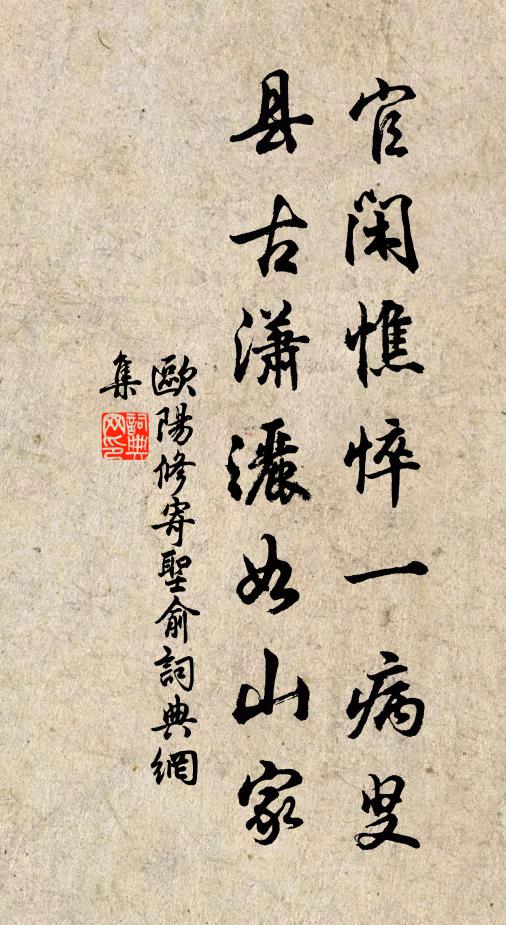 官闲憔悴一病叟
县古潇灑如山家
歐陽修寄聖俞詞典網
集
詞典
网印